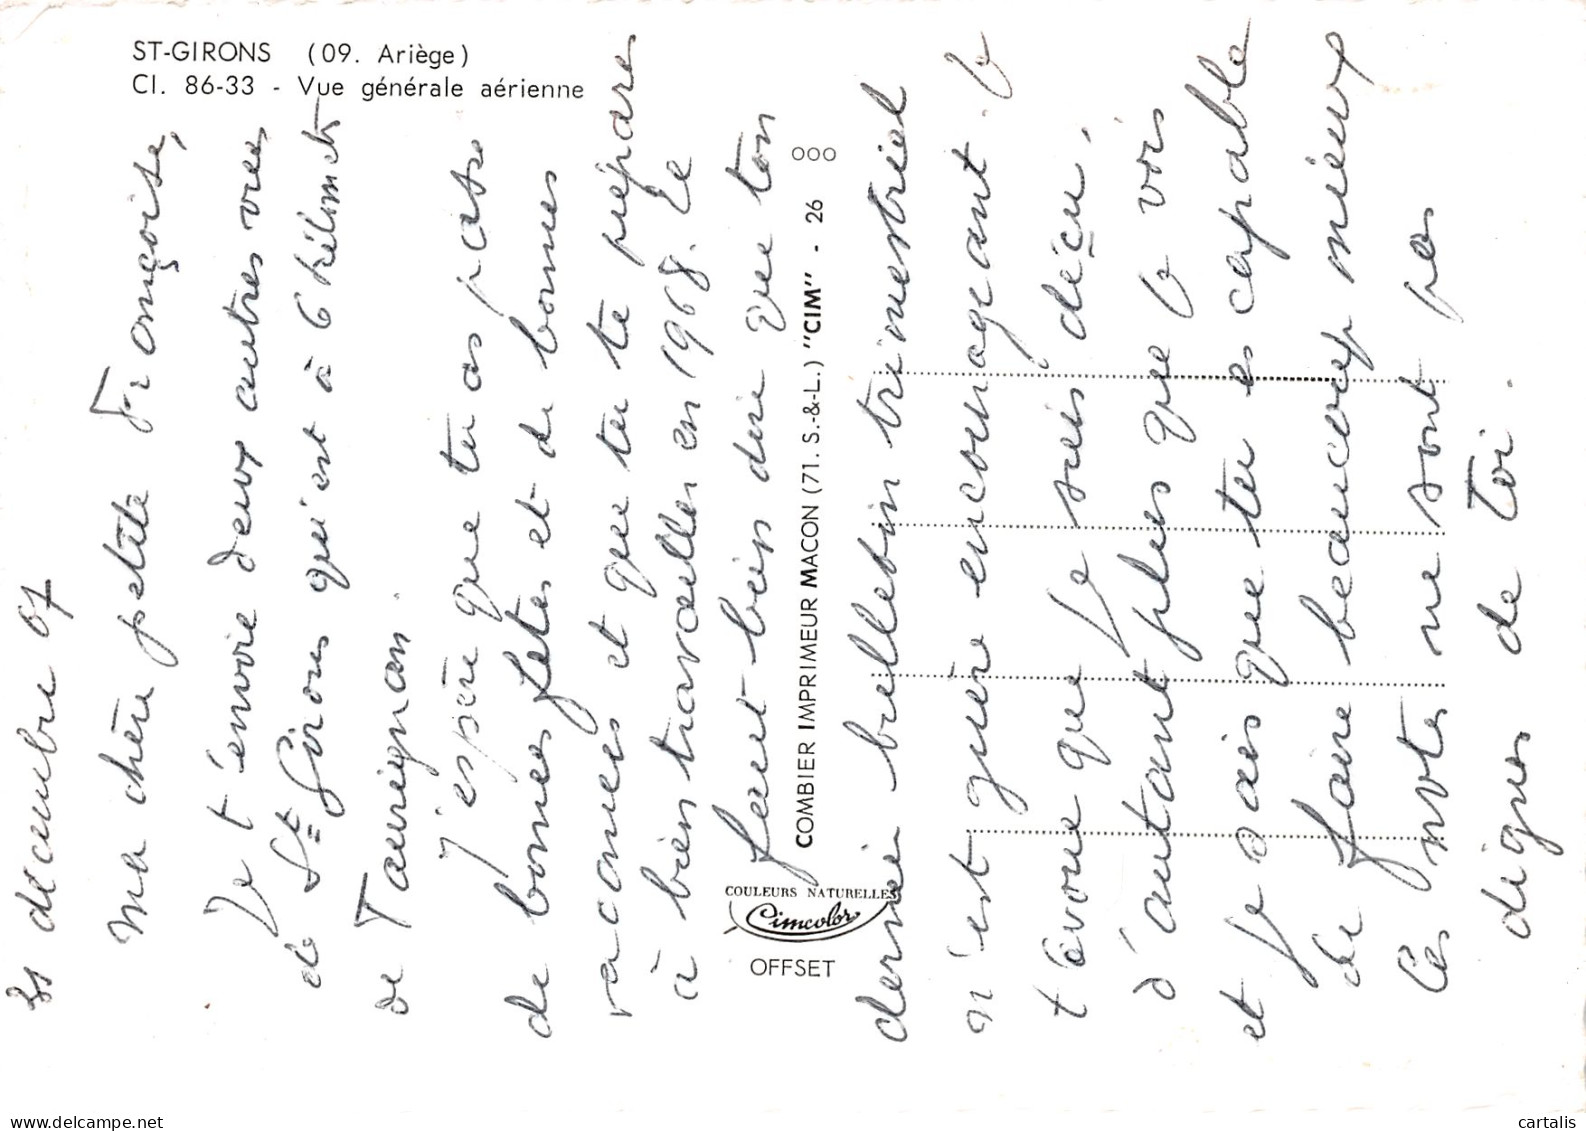 ST-GIRONS (09. Ariège)
Cl. 86-33 - Vue générale aérienne
décembre 67
Ma chère petite Françoise,
Je t'envoie deux autres vues
de St Girons qui est à 6 kilomets
de Taurignan.
J'espère que tu as passé
de bonnes fêtes et de bonnes
vacances et que tu te prépares
à bien travailler en 1968. Le
faut-bien dire que ton
dernier bulletin trimestriel
n'est guère encourageant. Je
t'avoue que je suis déçu,
d'autant plus que je vois
et je sais que tu es capable
de faire beaucoup mieux
Ces notes ne sont pas
dignes de toi.
COMBIER IMPRIMEUR MACON (71. S.-&-L.) "CIM" - 26 000
COULEURS NATURELLES
Cimcolor
OFFSET
delcampe.net
cartalis